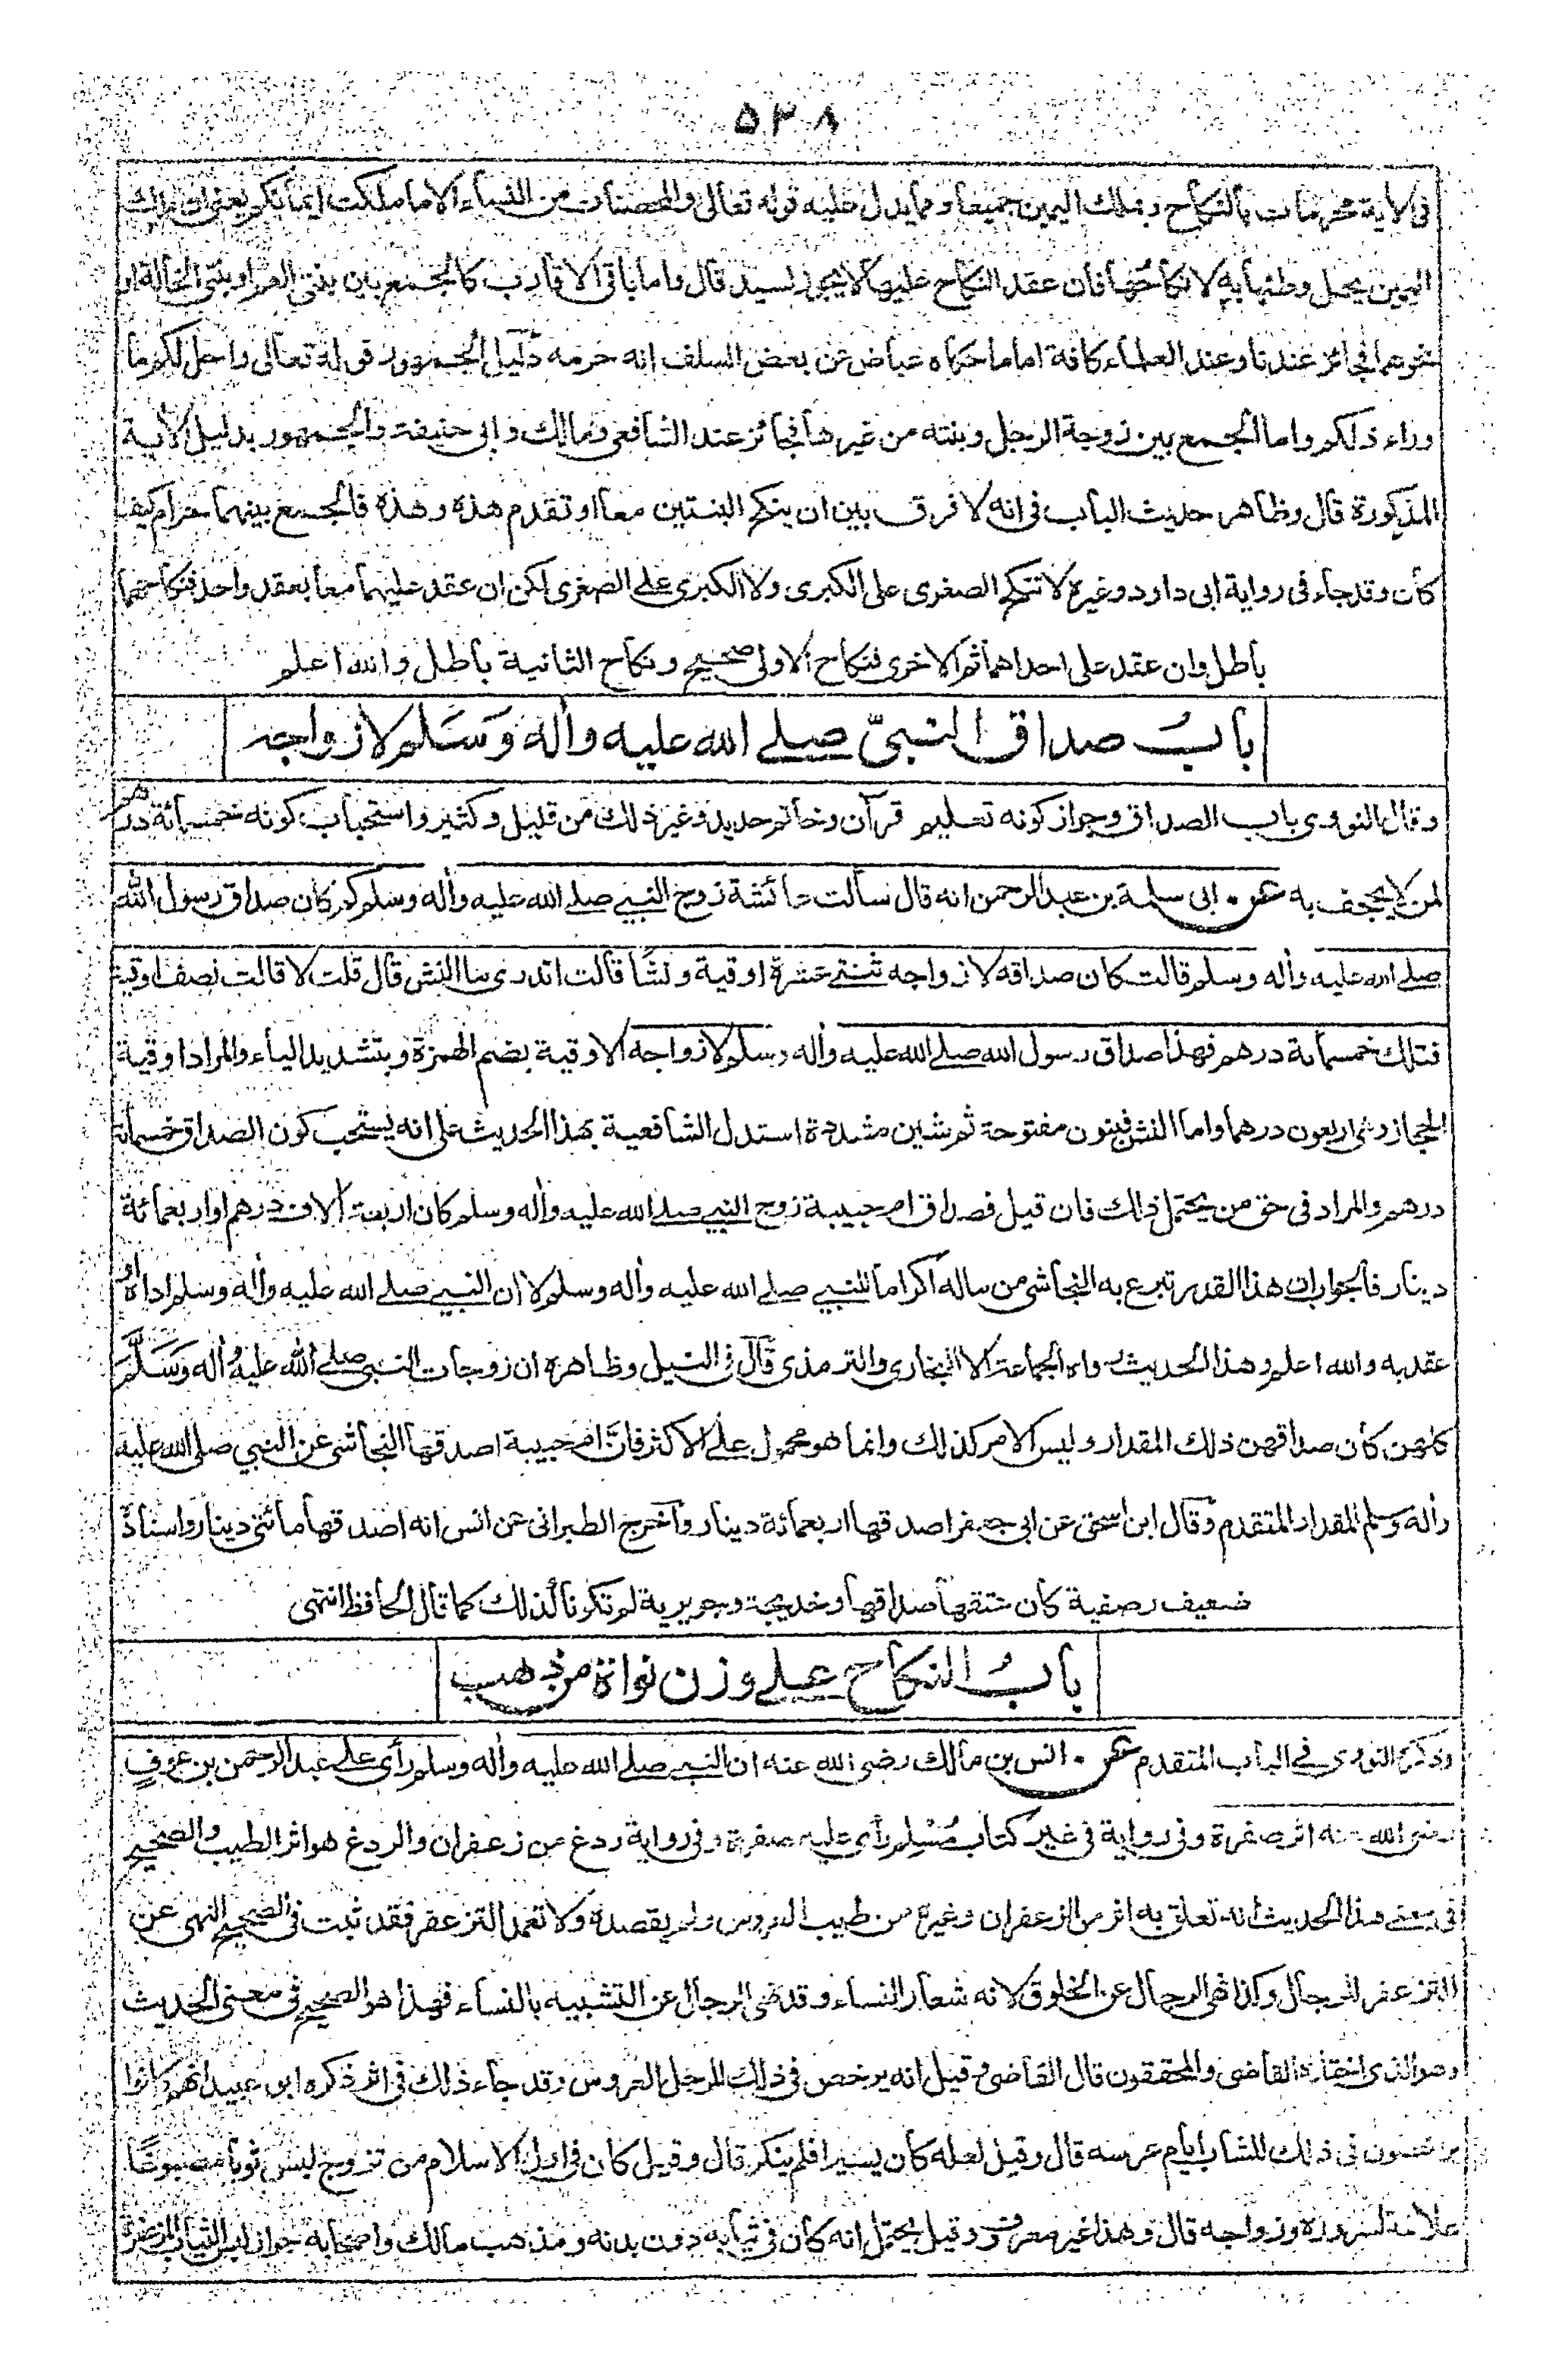 ٥٣٨
فى الآية محرمات بالنكاح وبملك اليمين جميعا ومما يدل عليه قوله تعالى والمحصنات من النساء الا ما ملكت ايمانكم يعنى ان ملك
اليمين يحل وطئها به لا نكاحها فان عقد النكاح عليها لا يجوز لسيد قال واما باقى الاقارب كالجمع بين بنتى العم او بنتى الخالة او
نحوهما فجائز عندنا وعند العلماء كافة اما ما حكاه عياض عن بعض السلف انه حرمه دليل الجمهور قوله تعالى واحل لكم ما
وراء ذلكم واما الجمع بين زوجة الرجل وبنته من غيرها فجائز عند الشافعى ومالك وابى حنيفة والجمهور بدليل الآية
المذكورة قال وظاهر حديث الباب فى انه لا فرق بين ان ينكح البنتين معا او تقدم هذه وهذه فالجمع بينهما حرام كيف
كان وقد جاء فى رواية ابى داود وغيره لا تنكح الصغرى على الكبرى ولا الكبرى على الصغرى لكن ان عقد عليهما معا بعقد واحد فنكاحهما
باطل وان عقد على احداهما ثم الاخرى فنكاح الاولى صحيح ونكاح الثانية باطل والله اعلم
بابُ صداق النبىّ صلى الله عليه وأله وَسَلم لازواجه
وقال النووى باب الصداق وجواز كونه تعليم قرآن وخاتم حديد وغير ذلك من قليل وكثير واستحباب كونه خمسمائة درهم
لمن لا يجحف به عن ابى سلمة بن عبد الرحمن انه قال سألت عائشة زوج النبى صلى الله عليه وأله وسلم كم كان صداق رسول الله
صلى الله عليه وأله وسلم قالت كان صداقه لازواجه ثنتى عشرة اوقية ونشًا قالت اتدرى ما النش قال قلت لا قالت نصف اوقية
فتلك خمسمائة درهم فهذا صداق رسول الله صلى الله عليه وأله وسلم لازواجه الاوقية بضم الهمزة وبتشديد الياء والمراد اوقية
الحجاز وهى اربعون درهما واما النش فبنون مفتوحة ثم شين مشددة استدل الشافعية بهذا الحديث على انه يستحب كون الصداق خمسمائة
درهم والمراد فى حق من يحتمل ذلك فان قيل فصداق ام حبيبة زوج النبى صلى الله عليه وأله وسلم كان اربعة آلاف درهم او اربعمائة
دينار فالجواب ان هذا القدر تبرع به النجاشى من ماله اكراما للنبى صلى الله عليه وأله وسلم لا ان النبى صلى الله عليه وأله وسلم اداه او
عقد به والله اعلم وهذا الحديث رواه الجماعة الا البخارى والترمذى قال فى النيل وظاهره ان زوجات النبى صلى الله عليه وأله وَسَلَّمَ
كلهن كان صداقهن ذلك المقدار وليس الامر كذلك وانما هو محمول على الاكثر فانَّ ام حبيبة اصدقها النجاشى عن النبي صلى الله عليه
وأله وسلم المقدار المتقدم وقال ابن اسحق عن ابى جعفر اصدقها اربعمائة دينار وأخرج الطبرانى عن انس انه اصدقها مائتى دينار واسناده
ضعيف وصفية كان عتقها صداقها وخديجة وجويرية لم تكونا كذلك كما قال الحافظ انتهى
بابُ النكاح على وزن نواة من ذهب
وذكره النووى فى الباب المتقدم عن انس بن مالك رضى الله عنه ان النبى صلى الله عليه وأله وسلم رأى على عبد الرحمن بن عوفٍ
رضى الله عنه اثر صفرة وفى رواية فى غير كتاب مُسْلِم رأى عليه صفرة وفى رواية ردغ من زعفران والردغ هو اثر الطيب والصحيح
فى معنى هذا الحديث انه تعلق به اثر من الزعفران وغيره من طيب العروس ولم يقصده ولا تعمد التزعفر فقد ثبت فى الصحيح النهى عن
التزعفر للرجال وكذا نهى الرجال عن الخلوق لانه شعار النساء وقد نهى الرجال عن التشبيه بالنساء فهذا هو الصحيح فى معنى الحديث
وهو الذى اختاره القاضى والمحققون قال القاضى وقيل انه يرخص فى ذلك للرجل العروس وقد جاء ذلك فى اثر ذكره ابو عبيد انهم كانوا
يرخصون فى ذلك للشاب ايام عرسه قال وقيل لعله كان يسيرا فلم ينكر قال وقيل كان فى اول الاسلام من تزوج لبس ثوبا مصبوغًا
علامة لسروره وزواجه قال وهذا غير معروف وقيل يحتمل انه كان فى ثيابه دون بدنه ومذهب مالك واصحابه جواز لبس الثياب المزعفرة